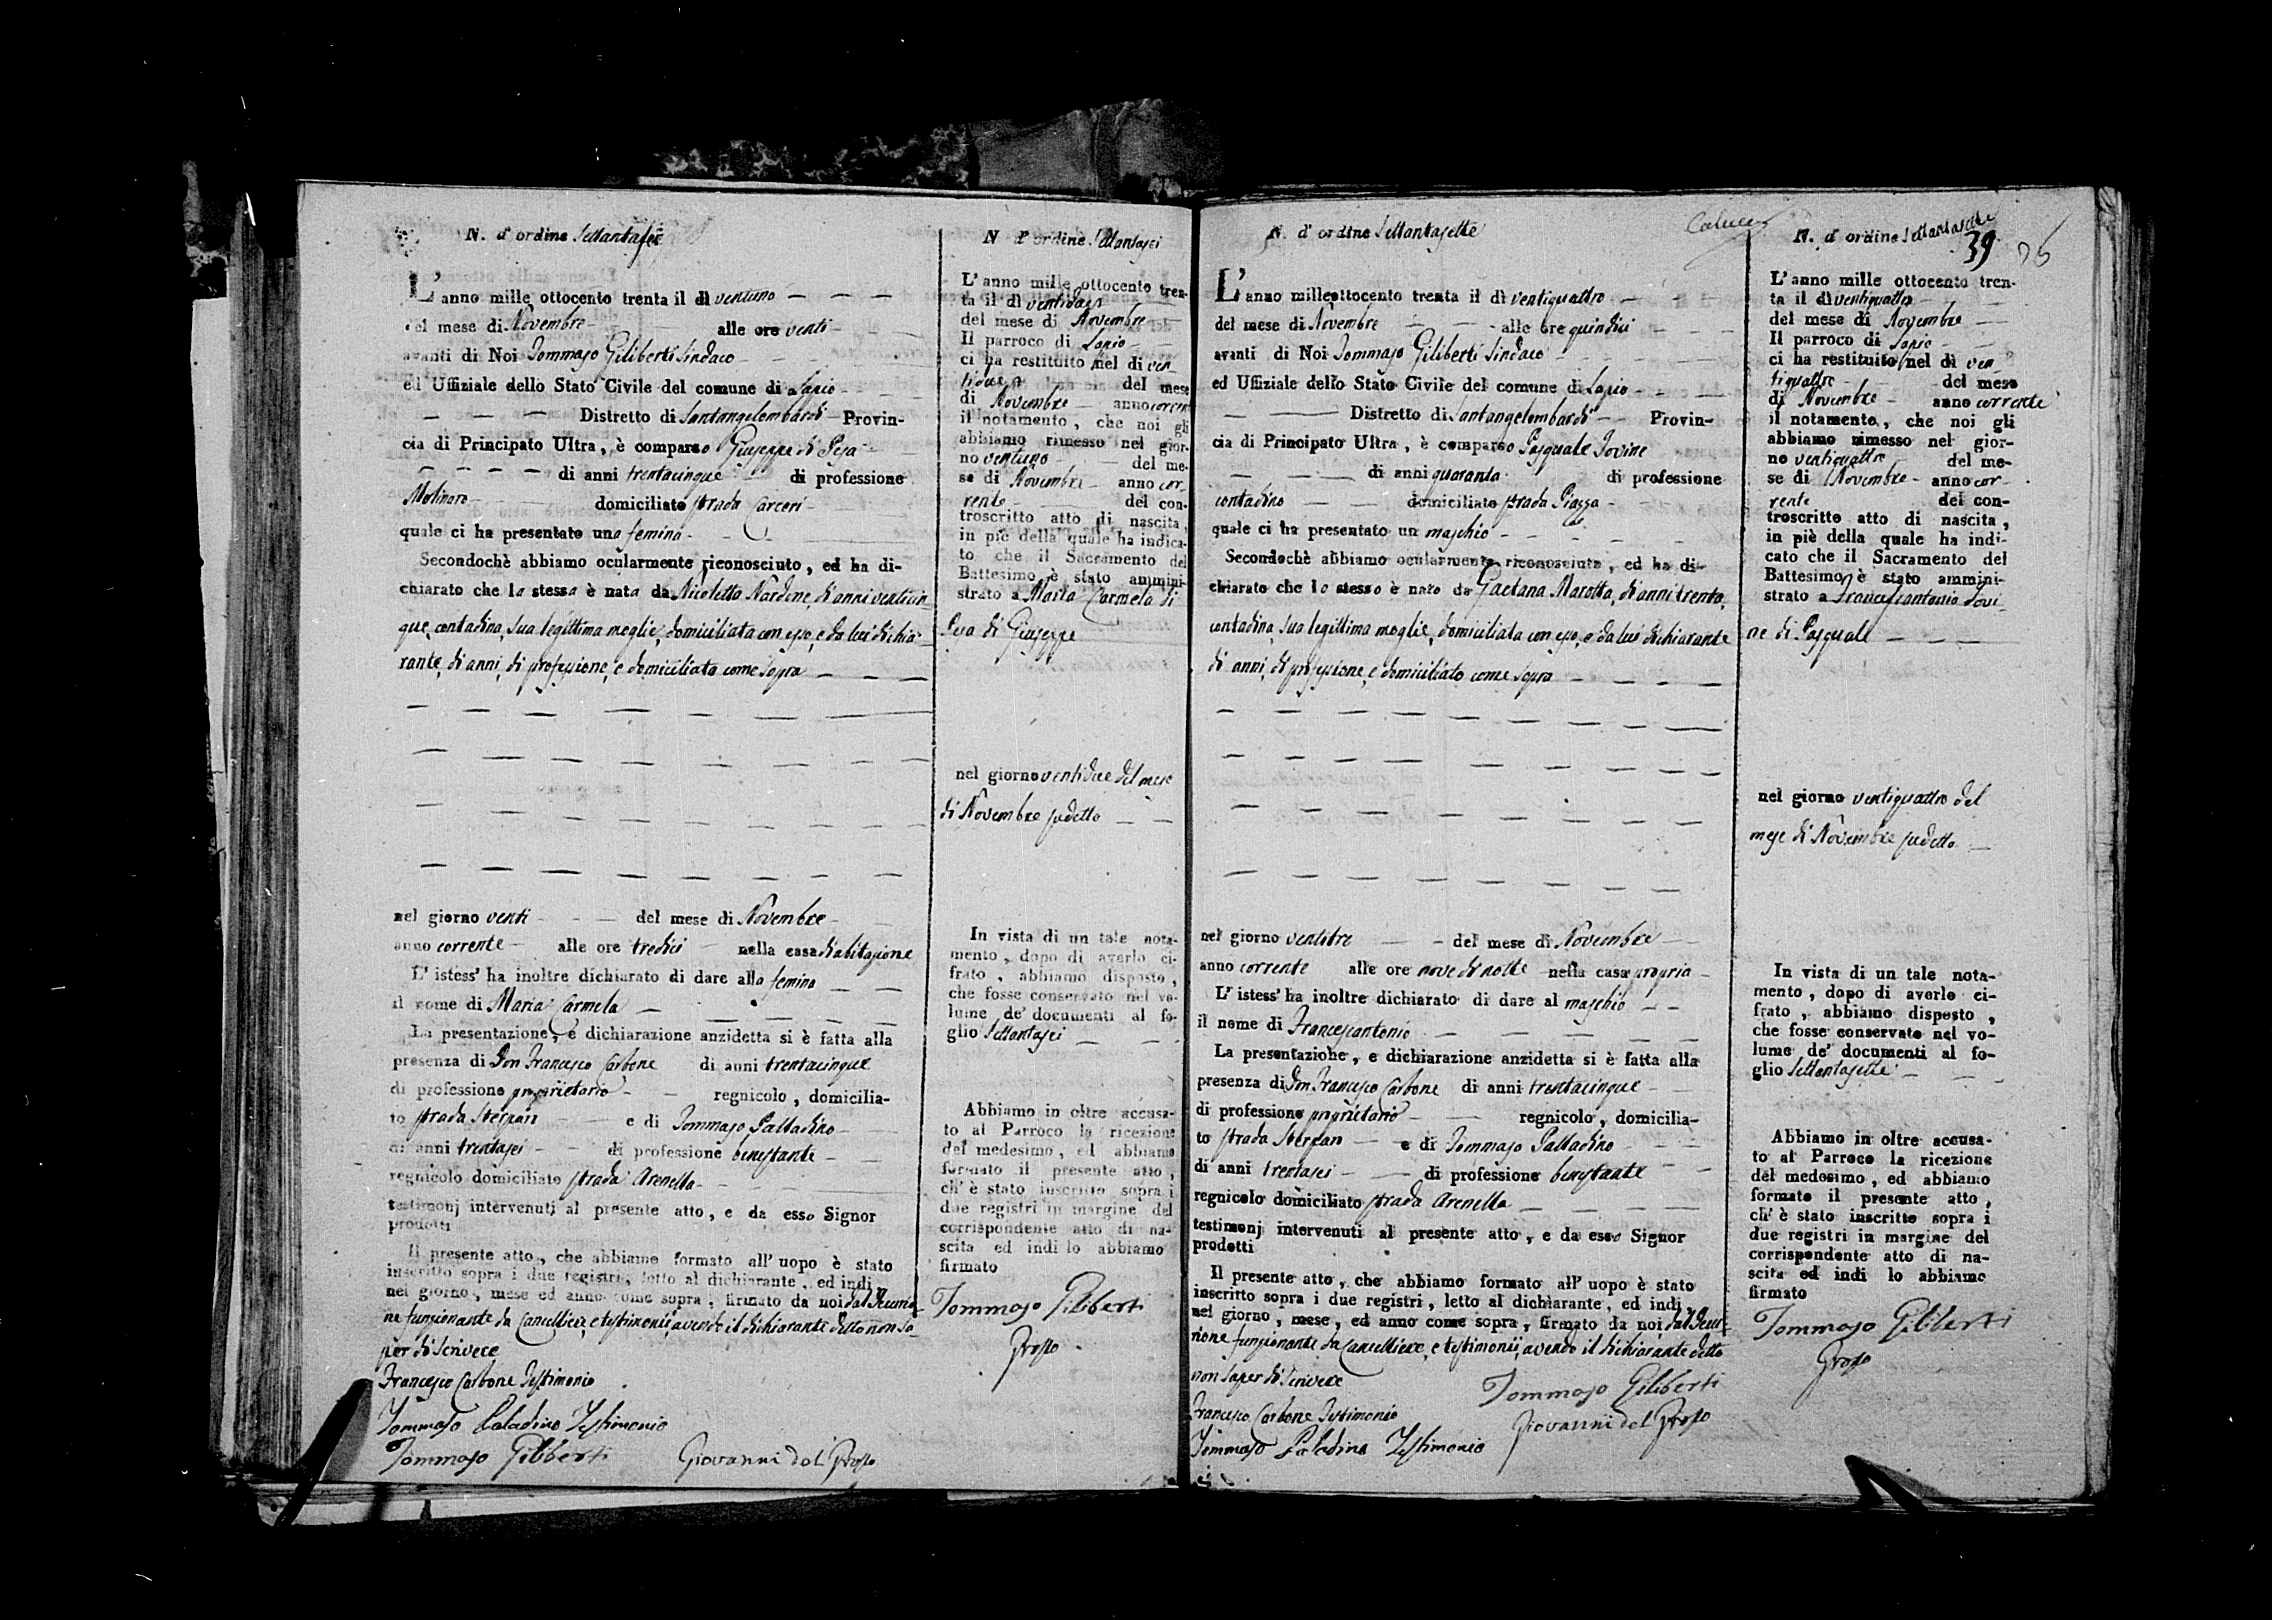 N. d'ordine Settantasei
L'anno mille ottocento trenta il dì ventuno
del mese di Novembre alle ore venti
avanti di Noi Tommaso Giliberti Sindaco
ed Uffiziale dello Stato Civile del comune di Lapio
Distretto di Santangelombardi Provin-
cia di Principato Ultra, è comparso Giuseppe di Pesa
di anni trentacinque di professione
Molinaro domiciliato strada Carceri
quale ci ha presentato una femina
Secondochè abbiamo ocularmente riconosciuto, ed ha di-
chiarato che la stessa è nata da Nicoletta Nardone, di anni venticin-
que, contadina, sua legittima moglie, domiciliata con esso, e da lui dichia-
rante, di anni, di professione, e domiciliato come sopra
nel giorno venti del mese di Novembre
anno corrente alle ore tredici nella casa d'abitazione
L'istess' ha inoltre dichiarato di dare alla femina
il nome di Maria Carmela
La presentazione, e dichiarazione anzidetta si è fatta alla
presenza di Don Francesco Carbone di anni trentacinque
di professione proprietario regnicolo, domicilia-
to strada e di Tommaso Palladino
di anni trentasei di professione benestante
regnicolo domiciliato strada Arenella
testimonj intervenuti al presente atto, e da esso Signor
prodotti
Il presente atto, che abbiamo formato all' uopo è stato
inscritto sopra i due registri, letto al dichiarante, ed indi
nel giorno, mese ed anno come sopra, firmato da noi dal Decurio-
ne funzionante da Cancelliere, e testimonii, avendo il dichiarante detto non sa-
per di scrivere
Francesco Carbone Testimonio
Tommaso Paladino Testimonio
Tommaso Giliberti Giovanni del Grosso
N. d'ordine Settantasei
L'anno mille ottocento tren-
ta il dì ventidue
del mese di Novembre
Il parroco di Lapio
ci ha restituito nel di ven-
tidue del mese
di Novembre anno corrente
il notamento, che noi gli
abbiamo rimesso nel gior-
no ventuno del me-
se di Novembre anno cor-
rente del con-
troscritto atto di nascita,
in piè della quale ha indica-
to che il Sacramento del
Battesimo è stato ammini-
strato a Maria Carmela di
Pesa di Giuseppe
nel giorno ventidue del mese
di Novembre sudetto
In vista di un tale nota-
mento, dopo di averlo ci-
frato, abbiamo disposto,
che fosse conservato nel vo-
lume de' documenti al fo-
glio Settantasei
Abbiamo in oltre accusa-
to al Parroco la ricezione
del medesimo, ed abbiamo
formato il presente atto,
ch' è stato inscritto sopra i
due registri in margine del
corrispondente atto di na-
scita ed indi lo abbiamo
firmato
Tommaso Giliberti
Grosso
N. d'ordine Settantasette
L'anno milleottocento trenta il dì ventiquattro
del mese di Novembre alle ore quindici
avanti di Noi Tommaso Giliberti Sindaco
ed Uffiziale dello Stato Civile del comune di Lapio
Distretto di Santangelombardi Provin-
cia di Principato Ultra, è comparso Pasquale Iovine
di anni quaranta di professione
contadino domiciliato strada Piazza
quale ci ha presentato un maschio
Secondochè abbiamo ocularmente riconosciuto, ed ha di-
chiarato che lo stesso è nato da Gaetana Marotta, di anni trenta,
contadina, sua legittima moglie, domiciliata con esso, e da lui dichiarante
di anni, di professione, e domiciliato come sopra
nel giorno ventitre del mese di Novembre
anno corrente alle ore nove di notte nella casa propria
L'istess' ha inoltre dichiarato di dare al maschio
il nome di Francescantonio
La presentazione, e dichiarazione anzidetta si è fatta alla
presenza di Don Francesco Carbone di anni trentacinque
di professione proprietario regnicolo, domicilia-
to strada e di Tommaso Palladino
di anni trentasei di professione benestante
regnicolo domiciliato strada Arenella
testimonj intervenuti al presente atto, e da esso Signor
prodotti
Il presente atto, che abbiamo formato all' uopo è stato
inscritto sopra i due registri, letto al dichiarante, ed indi
nel giorno, mese, ed anno come sopra, firmato da noi, dal Decu-
rione funzionante da Cancelliere, e testimonii, avendo il dichiarante detto
non saper di scrivere
Francesco Carbone Testimonio
Tommaso Paladino Testimonio
Tommaso Giliberti
Giovanni del Grosso
N. d'ordine Settantasette
39
L'anno mille ottocento tren-
ta il dì ventiquattro
del mese di Novembre
Il parroco di Lapio
ci ha restituito nel dì ven-
tiquattro del mese
di Novembre anno corrente
il notamento, che noi gli
abbiamo rimesso nel gior-
no ventiquattro del me-
se di Novembre anno cor-
rente del con-
troscritto atto di nascita,
in piè della quale ha indi-
cato che il Sacramento del
Battesimo è stato ammini-
strato a Francescantonio Iovi-
ne di Pasquale
nel giorno ventiquattro del
mese di Novembre sudetto
In vista di un tale nota-
mento, dopo di averlo ci-
frato, abbiamo disposto,
che fosse conservato nel vo-
lume de' documenti al fo-
glio Settantasette
Abbiamo in oltre accusa-
to al Parroco la ricezione
del medesimo, ed abbiamo
formato il presente atto,
ch' è stato inscritto sopra i
due registri in margine del
corrispondente atto di na-
scita ed indi lo abbiamo
firmato
Tommaso Giliberti
Grosso